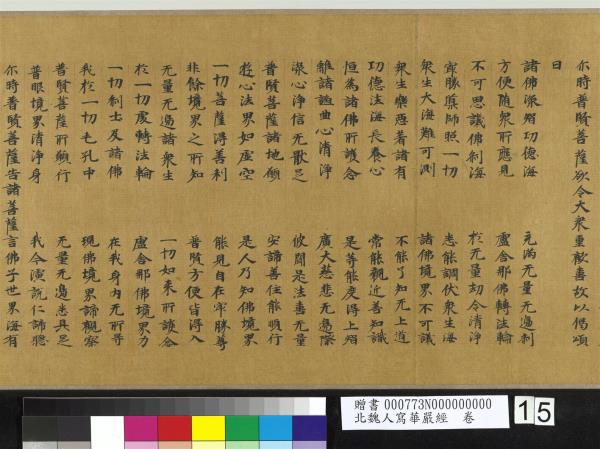 尒時普賢菩薩欲令大衆重歡喜故以偈頌
曰
諸佛深智功德海 充滿无量无邊刹
方便随衆所應見 盧舍那佛轉法輪
不可思議佛刹海 於无量劫令清淨
勝師照一切 悉能調伏衆生海
衆生大海難可測 諸佛境界不可議
衆生樂惡著諸有 不能了知无上道
功德法海長養心 常能親近善知識
恒為諸佛所護念 是等能度得上智
離諸諂曲心清淨 廣大慈悲无邊際
深心淨信无猒足 彼聞是法喜无量
普賢菩薩諸地願 安諦善住能順行
遊心法界如虛空 是人乃知佛境界
一切菩薩得善利 能見自在牢勝尊
非餘境界之所知 普賢方便皆得入
无量无邊諸衆生 一切如来所護念
於一切處轉法輪 盧舍那佛境界力
一切刹土及諸佛 在我身内无所㝵
我於一切毛孔中 現佛境界諦觀察
普賢菩薩所願行 无量无邊悉具足
普眼境界清淨身 我今演說仁諦聽
尒時普賢菩薩告諸菩薩言佛子世界海有
贈書 000773N000000000
北魏人寫華嚴經 卷
15